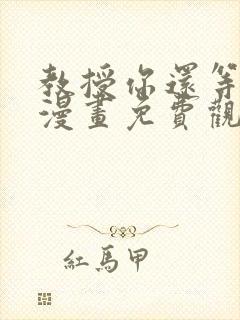 教授你還等
漫畫免費觀
紅馬甲